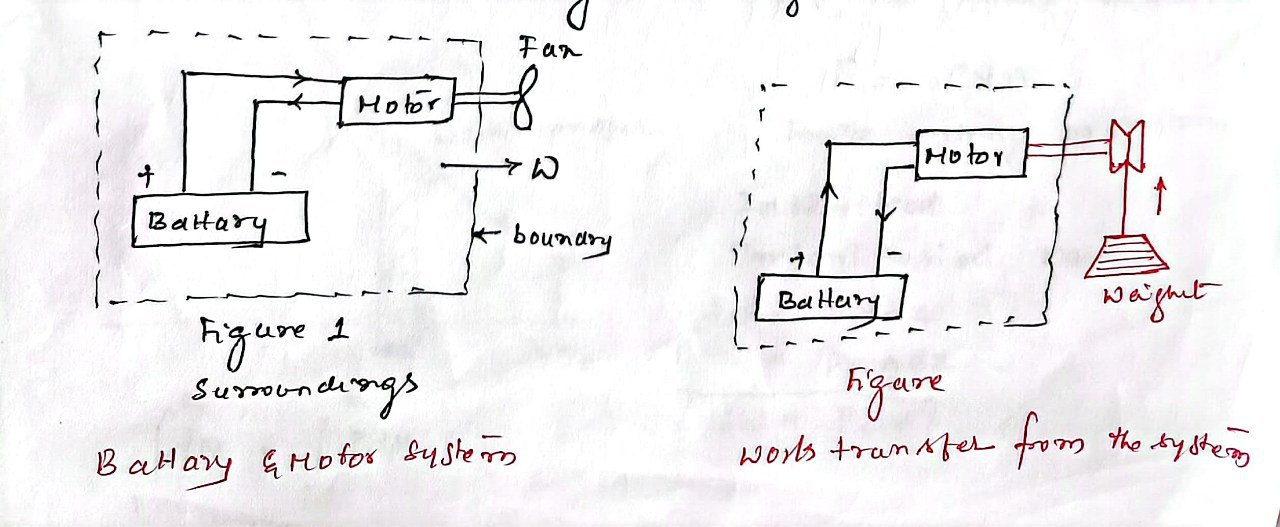 Fan
Motor
W
+
-
Battary
boundary
Figure 1
Surroundings
Battary & Motor System
Motor
+
-
Battary
Weight
Figure
Work transfer from the system